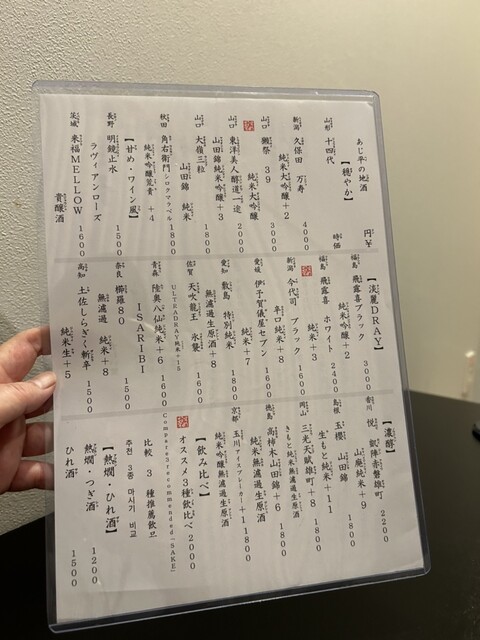 あじ平の地酒 円¥
【穏やか】
山形 十四代 時価
新潟 久保田 万寿 4000
純米大吟醸+2
山口 獺祭 39 3000
純米大吟醸
山口 東洋美人醇道一途 2000
山田錦純米吟醸+3
山口 大嶺三粒 1800
山田錦 純米
秋田 角右衛門シロクマラベル 1800
純米吟醸荒責 +4
【甘め・ワイン風】
長野 明鏡止水 1500
ラヴィアンローズ
茨城 来福MELLOW 1600
貴醸酒
【淡麗DRAY】
福島 飛露喜ブラック 3000
純米吟醸+2
福島 飛露喜 ホワイト 2400
純米+3
新潟 今代司 ブラック 1600
辛口純米+8
愛媛 伊予賀儀屋セブン 1600
純米+7
愛知 敷島 特別純米 1800
無濾過生原酒+8
佐賀 天吹龍王 氷襲 1600
ULTRADRAY純米+15
青森 陸奥八仙 純米+6 1600
ISARIBI
奈良 梛羅80 1500
無濾過 純米+8
高知 土佐しらぎく斬辛 1500
純米生+5
【濃醇】
香川 悦 凱陣赤磐雄町 2200
山廃純米+9
島根 玉櫻 山田錦 1800
生もと純米+11
岡山 三光天賦雄町+8 1800
きもと純米無濾過生原酒
徳島 高柿木山田錦+6 1800
純米無濾過生原酒
京都 玉川アイスブレーカー+1 1800
純米無濾過生原酒
【飲み比べ】
オススメ3種飲比べ 2000
Compare3recommended「SAKE」
比較 3 種推薦飲旦
추천 3종 마시기 비교
【熱燗・ひれ酒】
熱燗・つぎ酒 1200
ひれ酒 1500